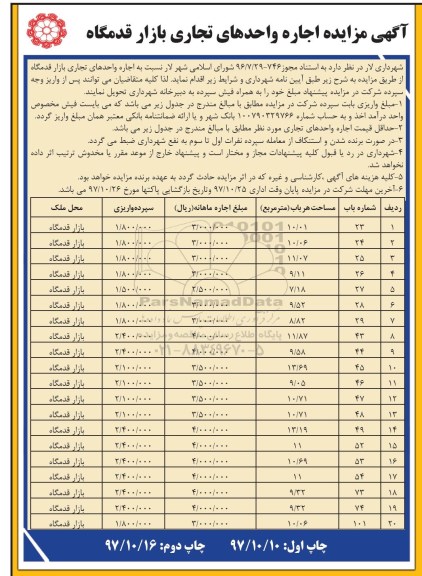 آگهی مزایده اجاره واحدهای تجاری بازار قدمگاه
شهرداری لار در نظر دارد به استناد مجوز ۷۴۶-۹۶/۷/۲۹ شورای اسلامی شهر لار نسبت به اجاره واحدهای تجاری بازار قدمگاه
از طریق مزایده به شرح زیر طبق آیین نامه شهرداری و شرایط زیر اقدام نماید. لذا کلیه متقاضیان می توانند پس از واریز وجه
سپرده شرکت در مزایده پیشنهاد مبلغ خود را به همراه فیش سپرده به دبیرخانه شهرداری تحویل نمایند.
۱-مبلغ واریزی بابت سپرده شرکت در مزایده مطابق با مبالغ مندرج در جدول زیر می باشد که می بایست فیش مخصوص
واحد درآمد اخذ و به حساب شماره ۱۰۰۷۹۰۳۲۹۷۶۶ بانک شهر و یا ارائه ضمانتنامه بانکی معتبر همان مبلغ واریز گردد.
۲-حداقل قیمت اجاره واحدهای تجاری مورد نظر مطابق با مبالغ مندرج در جدول زیر می باشد.
۳-در صورت برنده شدن و استنکاف از معامله سپرده نفرات اول تا سوم به نفع شهرداری ضبط می گردد.
۴-شهرداری در رد یا قبول کلیه پیشنهادات مجاز و مختار است و پیشنهاد خارج از موعد مقرر یا مخدوش ترتیب اثر داده
نخواهد شد.
۵-کلیه هزینه های آگهی ،کارشناسی و غیره که در اثر مزایده حادث گردد به عهده برنده مزایده خواهد بود.
۶-آخرین مهلت شرکت در مزایده پایان وقت اداری ۹۷/۱۰/۲۵ وتاریخ بازگشایی پاکتها مورخ ۹۷/۱۰/۲۶ می باشد.
ردیف شماره باب مساحت هرباب(مترمربع) مبلغ اجاره ماهانه(ریال) سپرده‌واریزی محل ملک
۱ ۲۳ ۱۰/۰۱ ۳/۰۰۰/۰۰۰ ۱/۸۰۰/۰۰۰ بازار قدمگاه
۲ ۲۴ ۱۰/۰۶ ۳/۰۰۰/۰۰۰ ۱/۸۰۰/۰۰۰ بازار قدمگاه
۳ ۲۵ ۱۱/۰۷ ۳/۰۰۰/۰۰۰ ۱/۸۰۰/۰۰۰ بازار قدمگاه
۴ ۲۶ ۹/۱۱ ۳/۰۰۰/۰۰۰ ۱/۸۰۰/۰۰۰ بازار قدمگاه
۵ ۲۷ ۷/۱۸ ۲/۵۰۰/۰۰۰ ۱/۵۰۰/۰۰۰ بازار قدمگاه
۶ ۲۸ ۹/۵۲ ۳/۰۰۰/۰۰۰ ۱/۸۰۰/۰۰۰ بازار قدمگاه
۷ ۲۹ ۸/۸۲ ۳/۰۰۰/۰۰۰ ۱/۸۰۰/۰۰۰ بازار قدمگاه
۸ ۴۳ ۱۱/۸۷ ۴/۰۰۰/۰۰۰ ۲/۴۰۰/۰۰۰ بازار قدمگاه
۹ ۴۴ ۹/۵۸ ۴/۰۰۰/۰۰۰ ۲/۴۰۰/۰۰۰ بازار قدمگاه
۱۰ ۴۵ ۱۳/۶۹ ۳/۵۰۰/۰۰۰ ۲/۱۰۰/۰۰۰ بازار قدمگاه
۱۱ ۴۶ ۹/۰۵ ۳/۵۰۰/۰۰۰ ۲/۱۰۰/۰۰۰ بازار قدمگاه
۱۲ ۴۷ ۱۰/۷۱ ۳/۵۰۰/۰۰۰ ۲/۱۰۰/۰۰۰ بازار قدمگاه
۱۳ ۴۸ ۱۰/۷۱ ۳/۵۰۰/۰۰۰ ۲/۱۰۰/۰۰۰ بازار قدمگاه
۱۴ ۴۹ ۱۳/۱۹ ۴/۰۰۰/۰۰۰ ۲/۴۰۰/۰۰۰ بازار قدمگاه
۱۵ ۵۲ ۱۱ ۴/۰۰۰/۰۰۰ ۲/۴۰۰/۰۰۰ بازار قدمگاه
۱۶ ۵۳ ۱۰/۶۹ ۴/۰۰۰/۰۰۰ ۲/۴۰۰/۰۰۰ بازار قدمگاه
۱۷ ۵۴ ۱۱ ۴/۰۰۰/۰۰۰ ۲/۴۰۰/۰۰۰ بازار قدمگاه
۱۸ ۷۳ ۹/۳۲ ۴/۰۰۰/۰۰۰ ۲/۴۰۰/۰۰۰ بازار قدمگاه
۱۹ ۷۴ ۹/۳۲ ۴/۰۰۰/۰۰۰ ۲/۴۰۰/۰۰۰ بازار قدمگاه
۲۰ ۱۰۱ ۱۰/۰۶ ۳/۰۰۰/۰۰۰ ۱/۸۰۰/۰۰۰ بازار قدمگاه
ParsNamadData
۰۲۱-۸۸۳۴۹۶۷۰-۵
چاپ اول: ۹۷/۱۰/۱۰ چاپ دوم: ۹۷/۱۰/۱۶